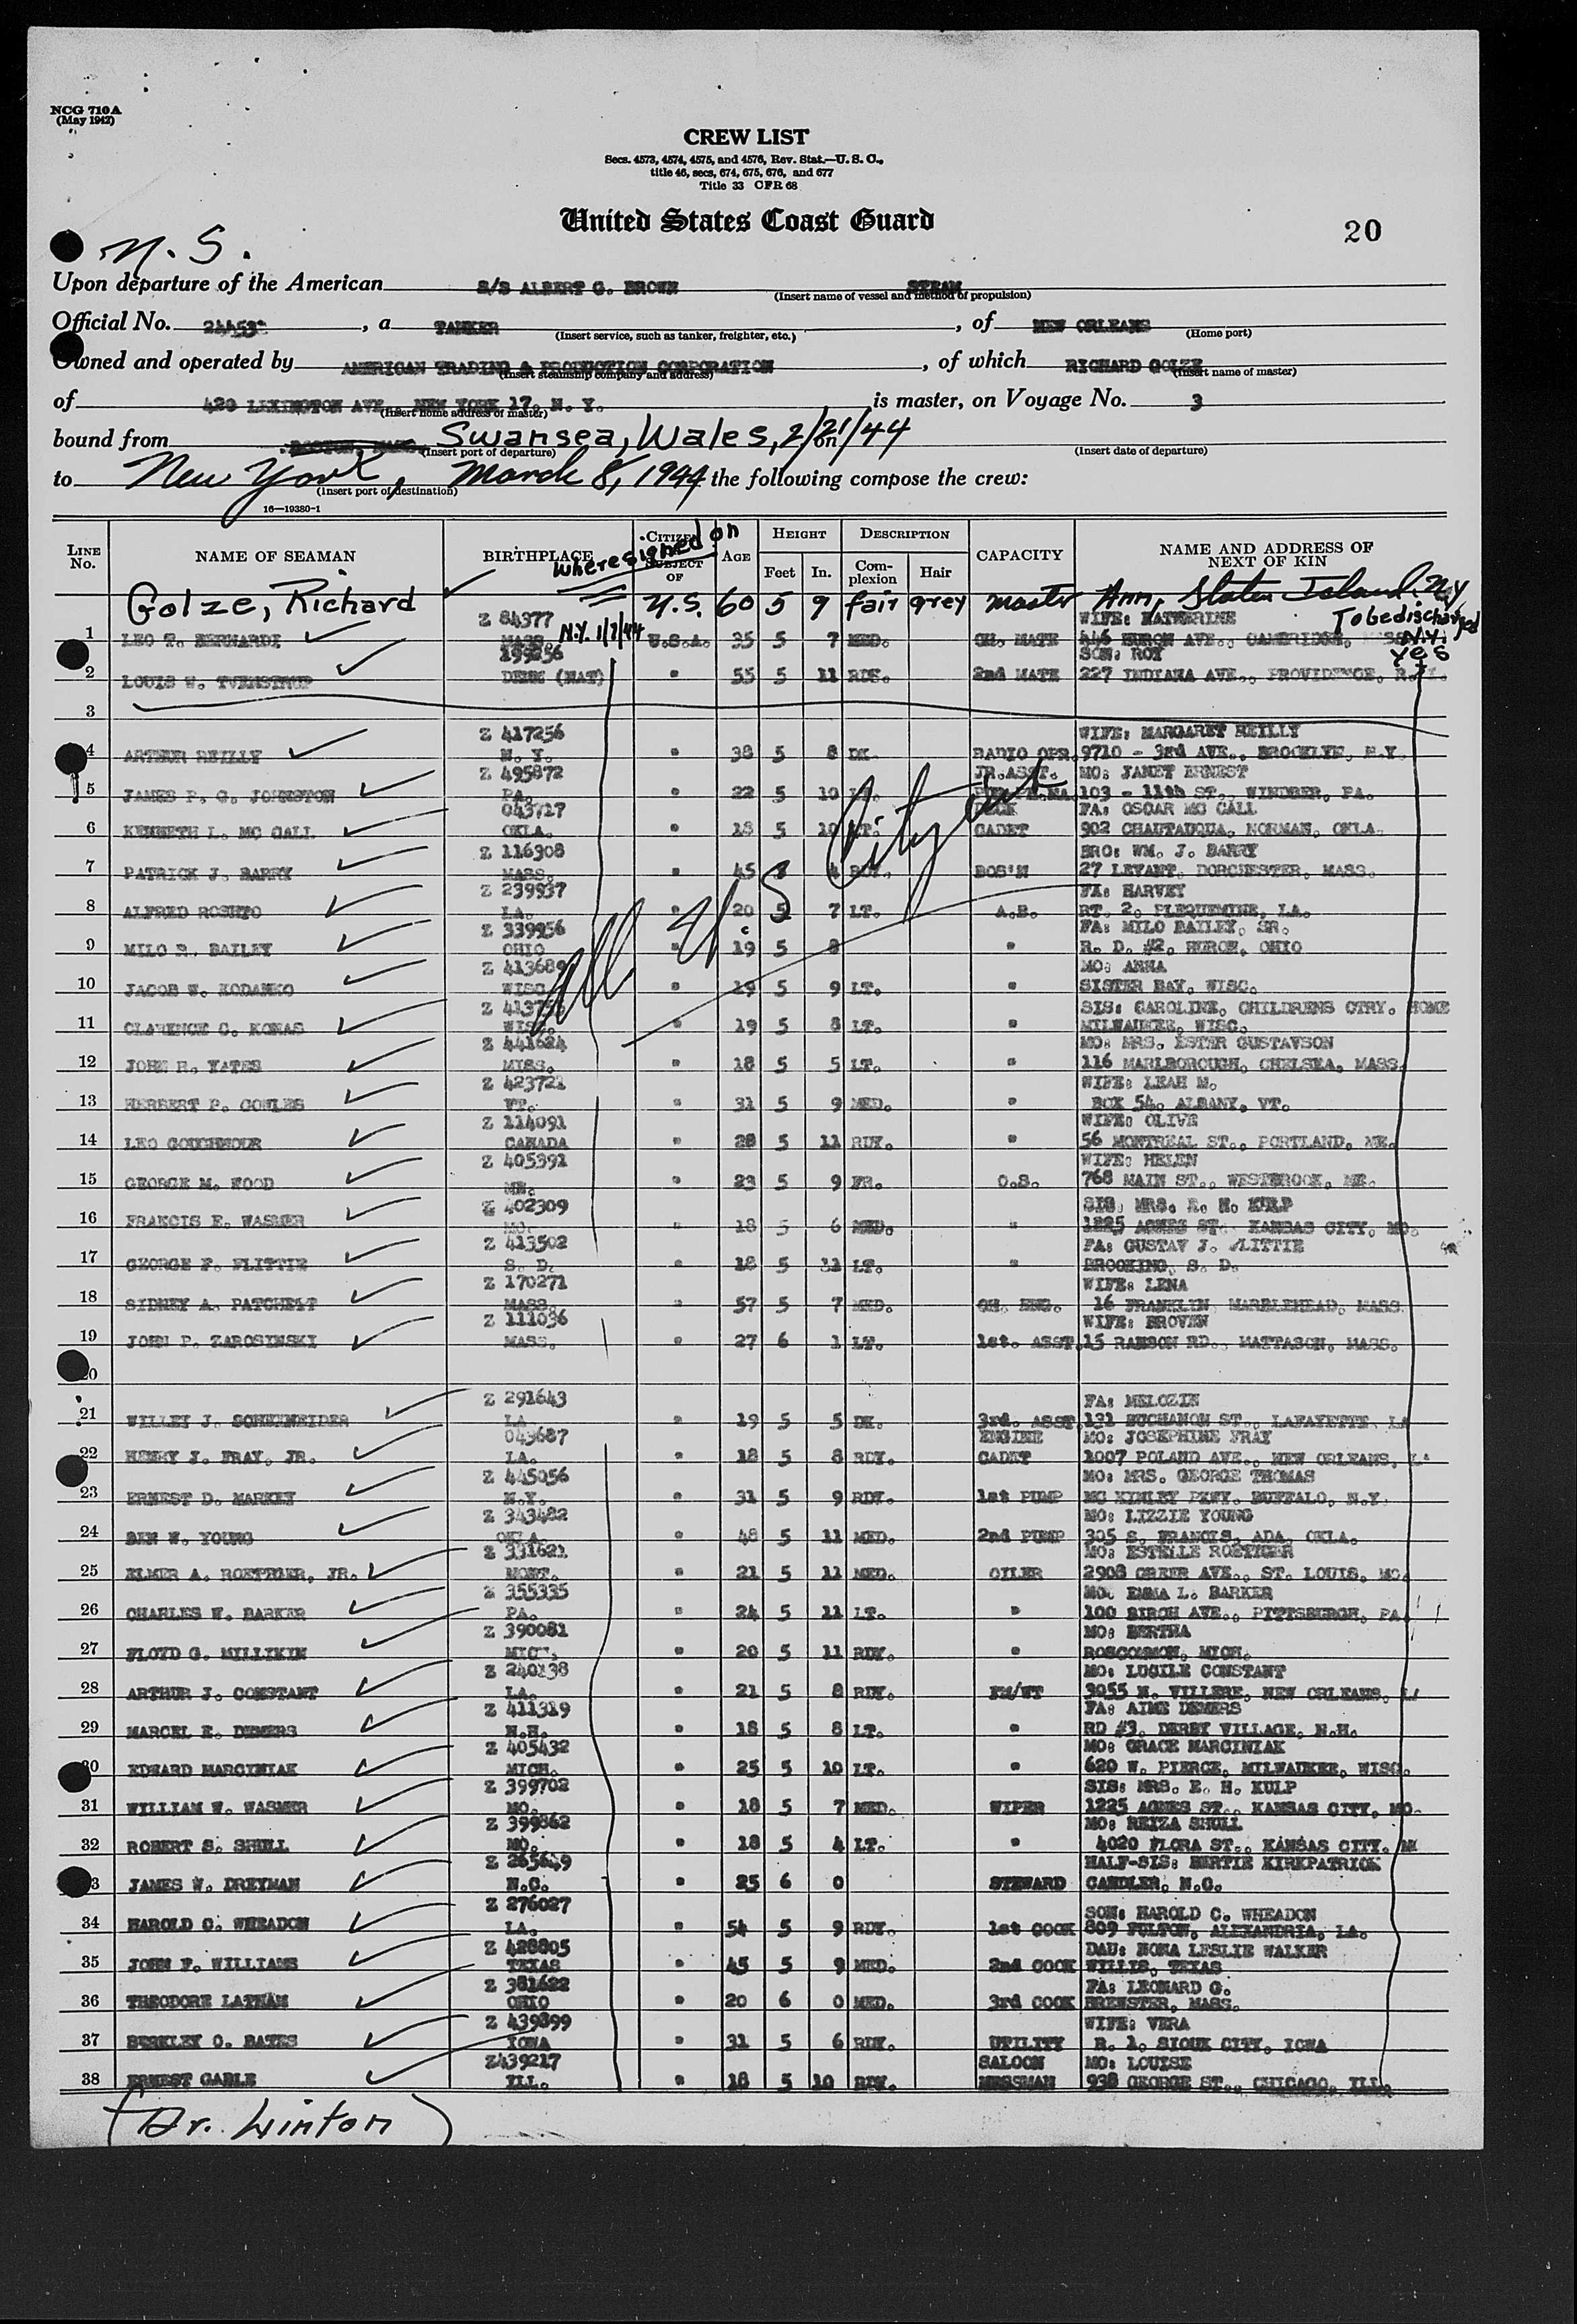 NCG 710A
(May 1942)
CREW LIST
Secs. 4573, 4574, 4575, and 4576, Rev. Stat.—U. S. C.,
title 46, secs, 674, 675, 676, and 677
Title 33 CFR 68
United States Coast Guard
20
N. S.
Upon departure of the American S/S ALBERT G. BROWN STEAM
(Insert name of vessel and method of propulsion)
Official No. , a TANKER , of NEW ORLEANS
(Insert service, such as tanker, freighter, etc.) (Home port)
Owned and operated by AMERICAN TRADING & PRODUCTION CORPORATION , of which RICHARD GOLZE
(Insert steamship company and address) (Insert name of master)
of 420 LEXINGTON AVE NEW YORK 17, N. Y. is master, on Voyage No. 3
(Insert home address of master)
bound from BOSTON, MASS. Swansea, Wales, 2/21/44 on
(Insert port of departure) (Insert date of departure)
to New York, March 8, 1944 the following compose the crew:
(Insert port of destination)
16—19380-1
LINE No. NAME OF SEAMAN BIRTHPLACE CITIZEN SUBJECT OF AGE HEIGHT Feet In. DESCRIPTION Complexion Hair CAPACITY NAME AND ADDRESS OF NEXT OF KIN
where signed on
Golze, Richard U.S. 60 5 9 fair grey Master Ann, Staten Island, NY
To be discharged N.Y. yes
Z 84977 WIFE: KATHERINE
1 LEO T. BERNARDI MASS. N.Y. 1/7/44 U.S.A. 35 5 7 MED. CH. MATE 446 HURON AVE., CAMBRIDGE,
199256 SON: ROY
2 LOUIS W. DENM (NAT) " 55 5 11 RDY. 2nd MATE 227 INDIANA AVE., PROVIDENCE, R.I.
3
Z 417256 WIFE: MARGARET REILLY
4 ARTHUR REILLY N. Y. " 38 5 8 DK. RADIO OPR. 9710 - 3rd AVE., BROOKLYN, N.Y.
Z 495872 JR. ASST. MO: JANET ERNEST
5 JAMES P. G. JOHNSTON PA. " 22 5 10 103 - 11th ST., WINDBER, PA.
043717 DECK FA: OSCAR MC CALL
6 KENNETH L. MC CALL OKLA. " 18 5 10 LT. CADET 902 CHAUTAUQUA, NORMAN, OKLA.
Z 116308 BRO: WM. J. BARRY
7 PATRICK J. BARRY MASS. " 45 4 BOS'N 27 LEVANT, DORCHESTER, MASS.
Z 239937 FA: HARVEY
8 ALFRED ROSHTO LA. " 20 5 7 LT. A.B. RT. 2, PLEQUEMINE, LA.
Z 339956 FA: MILO BAILEY, SR.
9 MILO R. BAILEY OHIO " 19 5 8 " R. D. #2, HURON, OHIO
Z 413689 MO: ANNA
10 JACOB W. KODANKO WISC. " 19 5 9 LT. " SISTER BAY, WISC.
SIS: CAROLINE, CHILDRENS CTRY. HOME
11 CLARENCE C. KOMAS WISC. " 19 5 8 LT. " MILWAUKEE, WISC.
All U S Cityent
Z 441624 MO: MRS. ESTER GUSTAVSON
12 JOHN R. YATES MISS. " 18 5 5 LT. " 116 MARLBOROUGH, CHELSEA, MASS.
Z 423721 WIFE: LEAH M.
13 HERBERT P. COWLES VT. " 31 5 9 MED. " BOX 54, ALBANY, VT.
Z 114091 WIFE: OLIVE
14 LEO GOUGHNOUR CANADA " 28 5 11 RDY. " 56 MONTREAL ST., PORTLAND, ME.
Z 405391 WIFE: HELEN
15 GEORGE M. WOOD ME. " 23 5 9 FR. O.S. 768 MAIN ST., WESTBROOK, ME.
Z 402309 SIS. MRS. E. H. KULP
16 FRANCIS E. WASMER MO. " 18 5 6 MED. " 1225 AGNES ST. KANSAS CITY, MO.
Z 413502 FA: GUSTAV J. FLITTIE
17 GEORGE F. FLITTIE S. D. " 18 5 11 LT. " BROOKING, S. D.
Z 170271 WIFE: LENA
18 SIDNEY A. PATCHETT MASS. " 57 5 7 MED. CH. ENG. 16 FRANKLIN, MARBLEHEAD, MASS.
Z 111036 WIFE: BROVEN
19 JOHN P. ZAROSINSKI MASS. " 27 6 1 LT. 1st. ASST. 15 RANSON RD., MATTASON, MASS.
20
Z 291643 FA: MELOZIN
21 WILLEY J. SCHEXNEIDER LA. " 19 5 5 DK. 3rd. ASST. 131 BUCHANON ST., LAFAYETTE LA
043687 ENGINE MO: JOSEPHINE FRAY
22 HENRY J. FRAY, JR. LA. " 18 5 8 RDY. CADET 1007 POLAND AVE., NEW ORLEANS, LA
Z 445056 MO: MRS. GEORGE THOMAS
23 ERNEST D. MARKEY N.Y. " 31 5 9 RDY. 1st PUMP MC KINLEY PKWY. BUFFALO, N.Y.
Z 343482 MO: LIZZIE YOUNG
24 BEN W. YOUNG OKLA. " 48 5 11 MED. 2nd PUMP 305 S. FRANCIS, ADA, OKLA.
Z 331621 MO: ESTELLE ROETTGER
25 ELMER A. ROETTGER, JR. MONT. " 21 5 11 MED. OILER 2908 GREER AVE., ST. LOUIS, MO.
Z 355335 MO. EMMA L. BARKER
26 CHARLES W. BARKER PA. " 24 5 11 LT. " 100 BIRCH AVE., PITTSBURGH, PA.
Z 390081 MO: BERTHA
27 FLOYD G. MILLIKIN MICH. " 20 5 11 RDY. " ROSCOMMON, MICH.
Z 240138 MO: LUCILE CONSTANT
28 ARTHUR J. CONSTANT LA. " 21 5 8 RDY. FM/WT 3055 N. VILLERE, NEW ORLEANS, LA
Z 411319 FA: AIME DEMERS
29 MARCEL E. DEMERS N.H. " 18 5 8 LT. " RD #3, DERRY VILLAGE, N.H.
Z 405432 MO: GRACE MARCINIAK
30 EDWARD MARCINIAK MICH. " 25 5 10 LT. " 620 W. PIERCE, MILWAUKEE, WISC.
Z 399702 SIS: MRS. E. H. KULP
31 WILLIAM W. WASMER MO. " 18 5 7 MED. WIPER 1225 AGNES ST., KANSAS CITY, MO.
Z 399862 MO: REIZA SHULL
32 ROBERT S. SHULL MO. " 18 5 4 LT. " 4020 FLORA ST., KANSAS CITY. M
Z 265649 HALF-SIS: BERTIE KIRKPATRICK
33 JAMES W. DREYMAN N.C. " 25 6 0 STEWARD CANDLER, N.C.
Z 276027 SON: HAROLD C. WHEADON
34 HAROLD C. WHEADON LA. " 54 5 9 RDY. 1st COOK 809 FULTON, ALEXANDRIA, LA.
Z 428805 DAU: NOMA LESLIE WALKER
35 JOHN F. WILLIAMS TEXAS " 45 5 9 MED. 2nd COOK WILLIS, TEXAS
Z 381622 FA: LEONARD G.
36 THEODORE LATHAM OHIO " 20 6 0 MED. 3rd COOK BREWSTER, MASS.
Z 439899 WIFE: VERA
37 BERKLEY O. BATES IOWA " 31 5 6 RDY. UTILITY R. 1, SIOUX CITY, IOWA
Z439217 SALOON MO: LOUISE
38 ERNEST GABLE ILL. " 18 5 10 RDY. MESSMAN 938 GEORGE ST., CHICAGO, ILL.
(Dr. Linton)